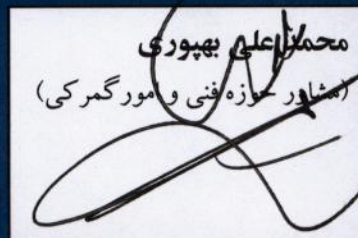 محمدعلی بهپوری
(مشاور حوزه فنی و امور گمرکی)